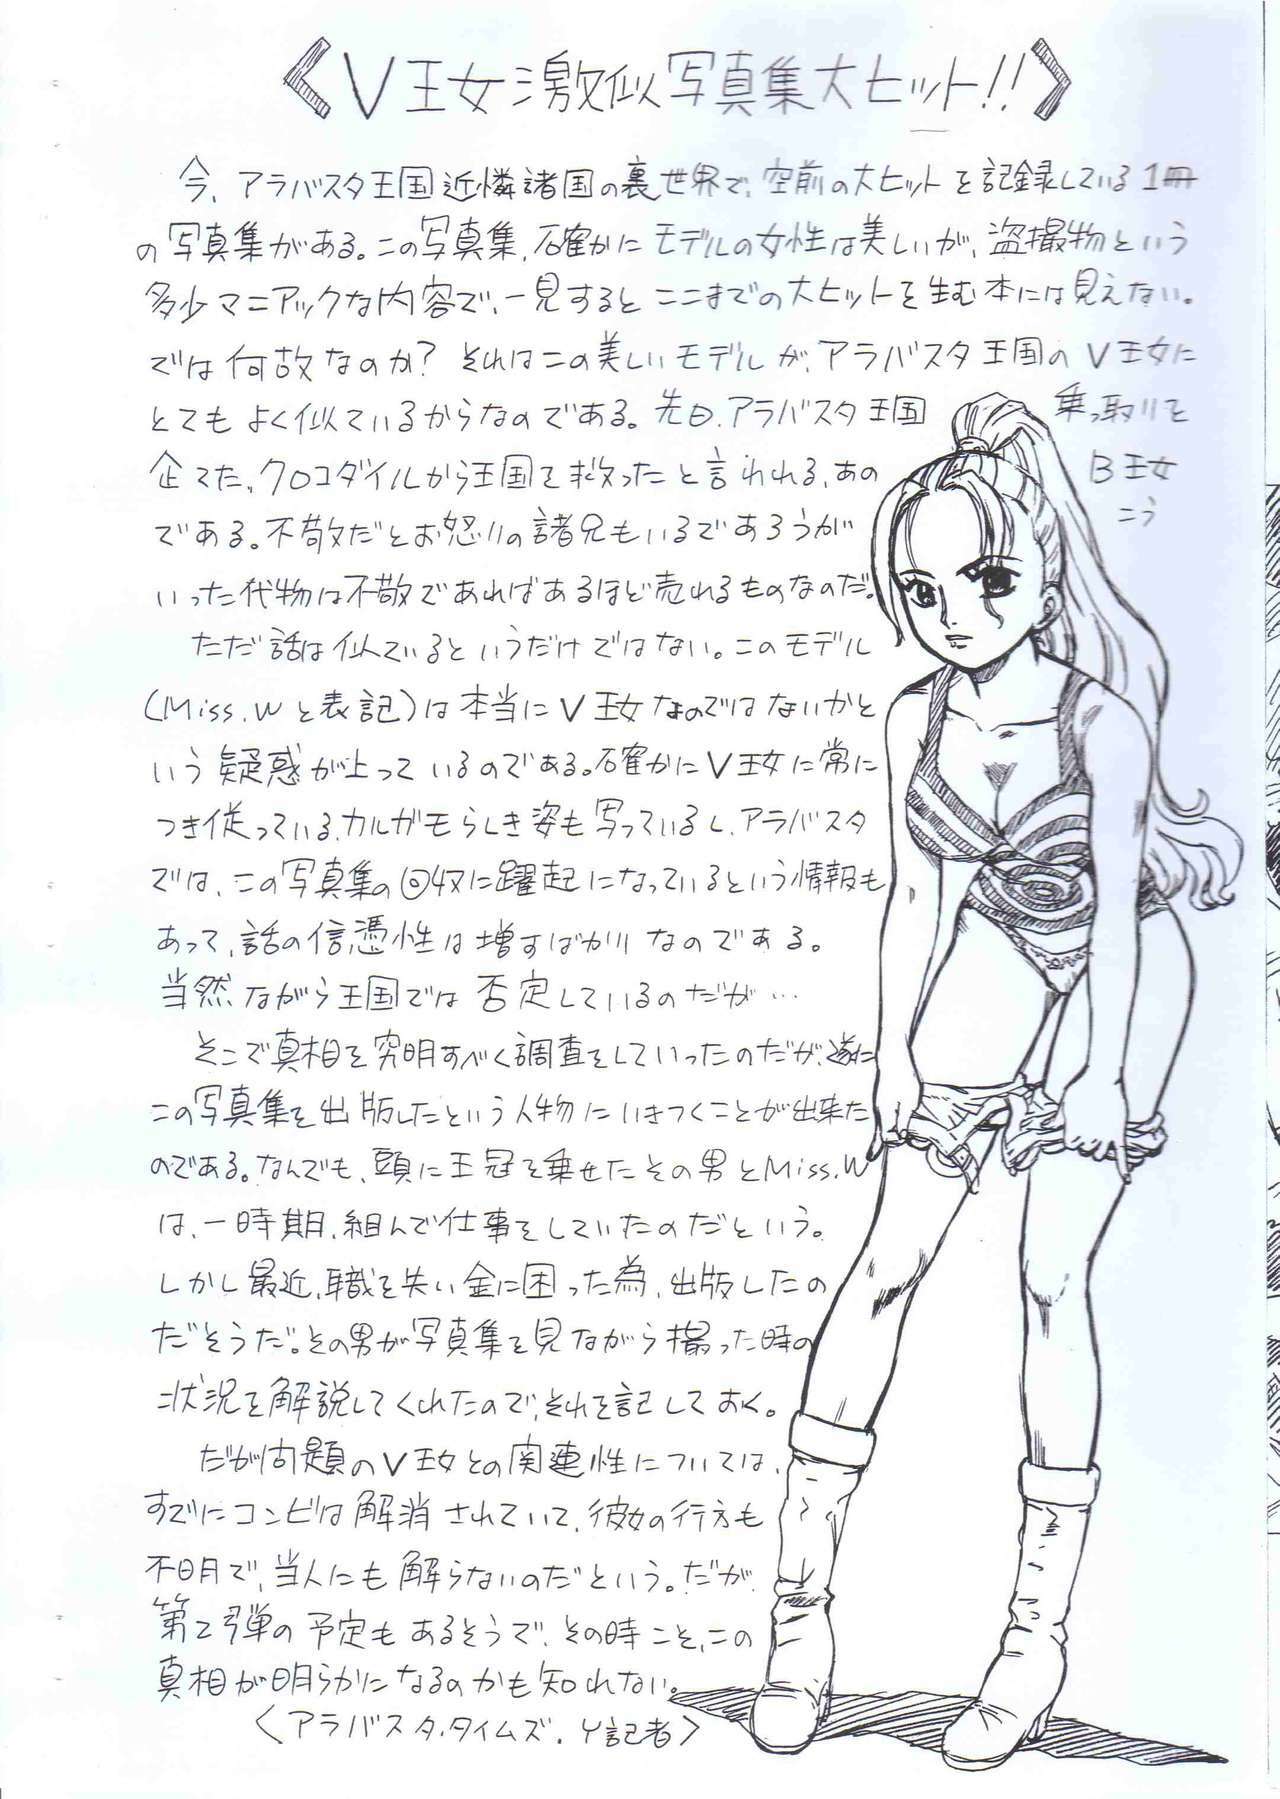 《V王女激似写真集大ヒット!!》
今、アラバスタ王国近隣諸国の裏世界で、空前の大ヒットを記録している1冊
の写真集がある。この写真集、確かにモデルの女性は美しいが、盗撮物という
多少マニアックな内容で、一見するとここまでの大ヒットを生む本には見えない。
では何故なのか? それはこの美しいモデルが、アラバスタ王国のV王女に
とてもよく似ているからなのである。先日、アラバスタ王国 乗っ取りを
企てた、クロコダイルから王国を救ったと言われる、あの B王女
である。不敬だとお怒りの諸兄もいるであろうが こう
いった代物は不敬であればあるほど売れるものなのだ。
ただ話は似ているというだけではない。このモデル
(Miss.Wと表記)は本当にV王女なのではないかと
いう疑惑が上っているのである。確かにV王女に常に
つき従っている、カルガモらしき姿も写っているし、アラバスタ
では、この写真集の回収に躍起になっているという情報も
あって、話の信憑性は増すばかりなのである。
当然ながら王国では否定しているのだが…
そこで真相を究明すべく調査をしていったのだが、遂に
この写真集を出版したという人物にいきつくことが出来た
のである。なんでも、頭に王冠を乗せたその男とMiss.W
は、一時期、組んで仕事をしていたのだという。
しかし最近、職を失い金に困った為、出版したの
だそうだ。その男が写真集を見ながら撮った時の
状況を解説してくれたので、それを記しておく。
だが問題のV王女との関連性については、
すでにコンビは解消されていて、彼女の行方も
不明で、当人にも解らないのだという。だが、
第2弾の予定もあるそうで、その時こそ、この
真相が明らかになるのかも知れない。
〈アラバスタ.タイムズ.Y記者〉